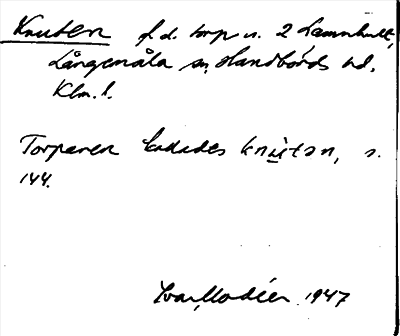 Knuten f.d. torp u. 2 Lammhult,
Långemåla sn, Handbörds hd,
Klm. l.
Torparen kallades knùtən, s.
144.
Ivar Modéer 1947